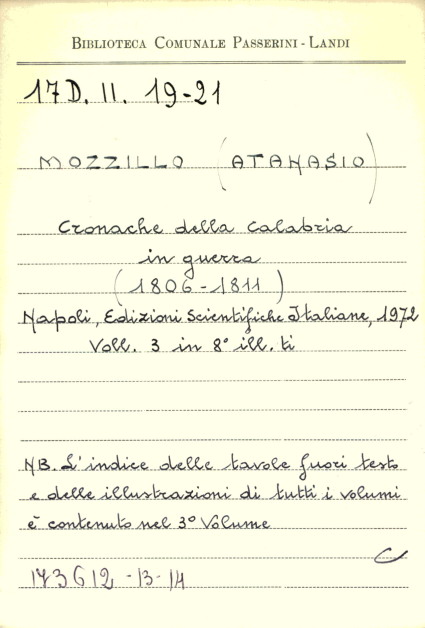 BIBLIOTECA COMUNALE PASSERINI - LANDI
17D. II. 19-21
MOZZILLO (ATANASIO)
Cronache della Calabria
in guerra
(1806-1811)
Napoli, Edizioni Scientifiche Italiane, 1972
Voll. 3 in 8° ill. ti
NB. L'indice delle tavole fuori testo
e delle illustrazioni di tutti i volumi
è contenuto nel 3° Volume
C
173612 -13-14